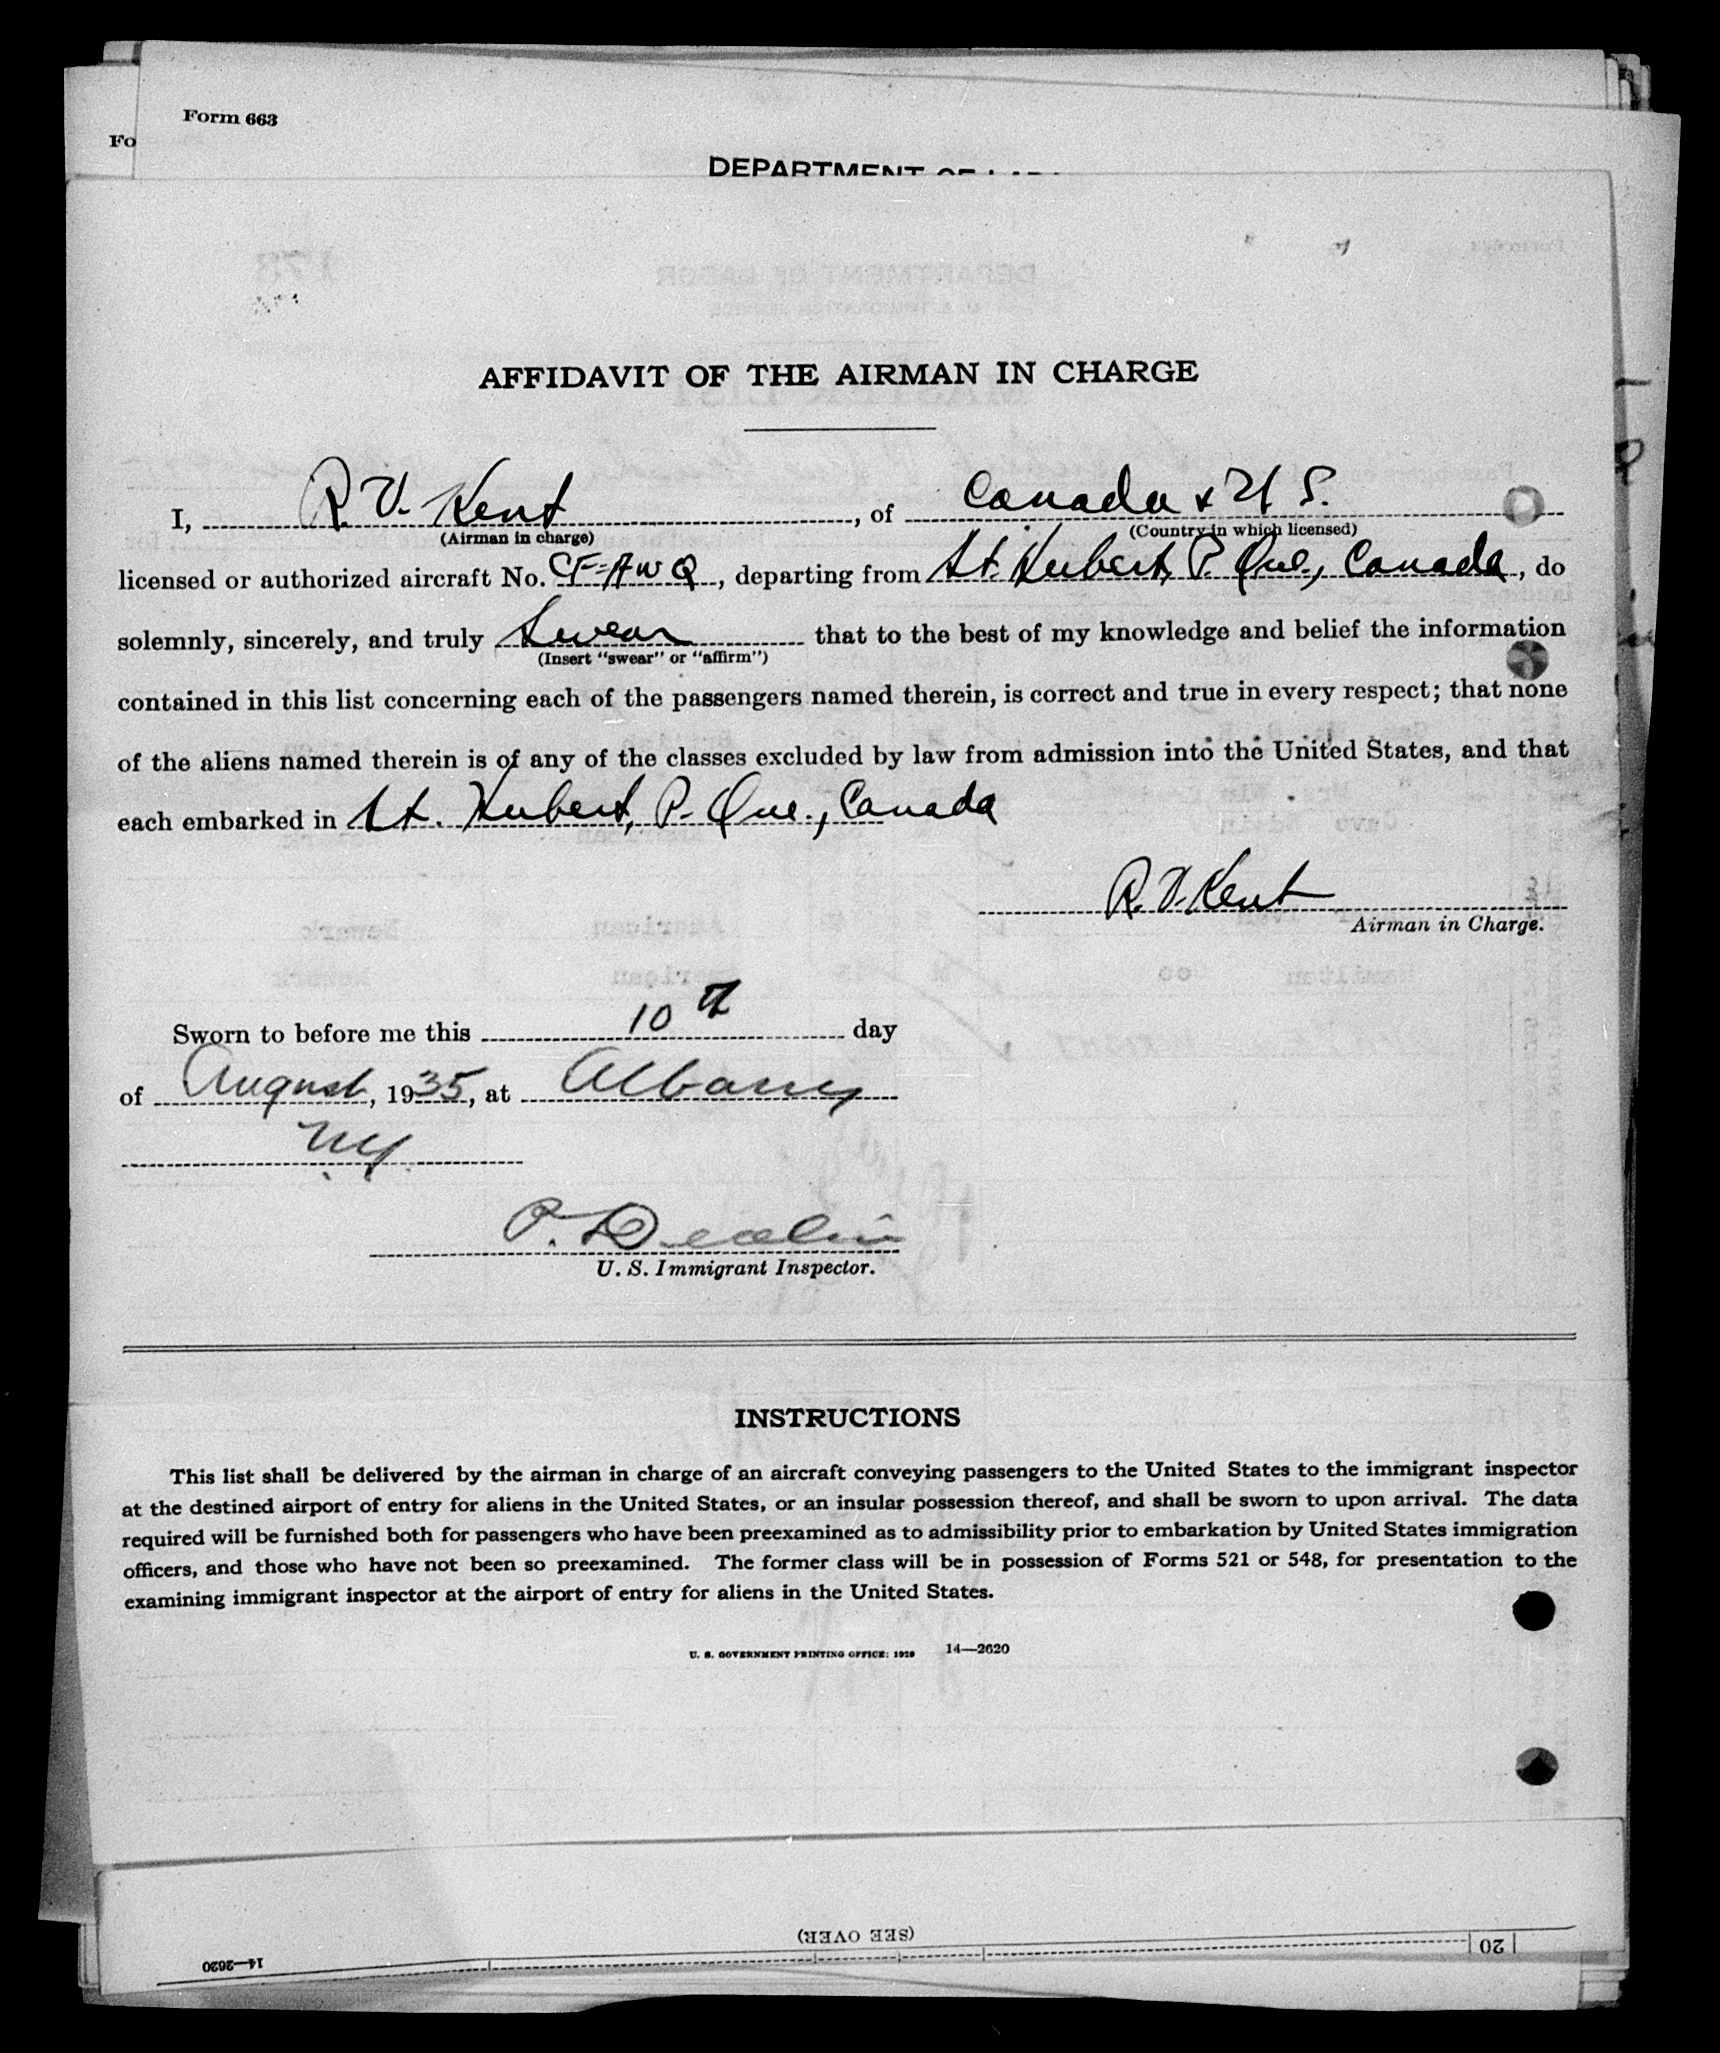 Form 663
Fo
DEPARTMENT OF LABO
AFFIDAVIT OF THE AIRMAN IN CHARGE
I, R. V. Kent, of Canada & U S.
(Airman in charge) (Country in which licensed)
licensed or authorized aircraft No. CF=AWQ, departing from St. Hubert, P. Que., Canada, do
solemnly, sincerely, and truly Swear that to the best of my knowledge and belief the information
(Insert "swear" or "affirm")
contained in this list concerning each of the passengers named therein, is correct and true in every respect; that none
of the aliens named therein is of any of the classes excluded by law from admission into the United States, and that
each embarked in St. Hubert, P. Que., Canada
R. V. Kent
Airman in Charge.
Sworn to before me this 10th day
of August, 1935, at Albany
N.Y.
P. Devlin
U. S. Immigrant Inspector.
INSTRUCTIONS
This list shall be delivered by the airman in charge of an aircraft conveying passengers to the United States to the immigrant inspector
at the destined airport of entry for aliens in the United States, or an insular possession thereof, and shall be sworn to upon arrival. The data
required will be furnished both for passengers who have been preexamined as to admissibility prior to embarkation by United States immigration
officers, and those who have not been so preexamined. The former class will be in possession of Forms 521 or 548, for presentation to the
examining immigrant inspector at the airport of entry for aliens in the United States.
U. S. GOVERNMENT PRINTING OFFICE: 1929 14—2620
(SEE OVER)
20
14—2620